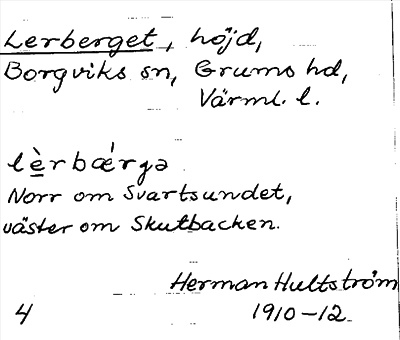 Lerberget, höjd,
Borgviks sn, Grums hd,
Värml. l.
lèrbǽrgə
Norr om Svartsundet,
väster om Skutbacken.
Herman Hultström
4 1910-12